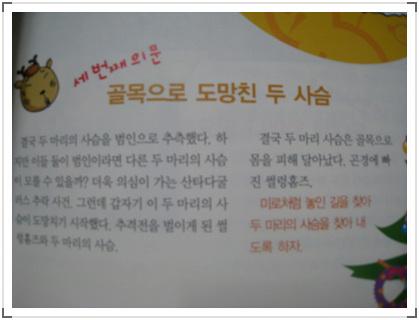 세번째 의문
골목으로 도망친 두 사슴
결국 두 마리의 사슴을 범인으로 추측했다. 하
지만 이들 둘이 범인이라면 다른 두 마리의 사슴
이 모를 수 있을까? 더욱 의심이 가는 산타다굴
러스 추락 사건. 그런데 갑자기 이 두 마리의 사
슴이 도망치기 시작했다. 추격전을 벌이게 된 썰
렁홈즈와 두 마리의 사슴.
결국 두 마리 사슴은 골목으로
몸을 피해 달아났다. 곤경에 빠
진 썰렁홈즈.
미로처럼 놓인 길을 찾아
두 마리의 사슴을 찾아 내
도록 하자.